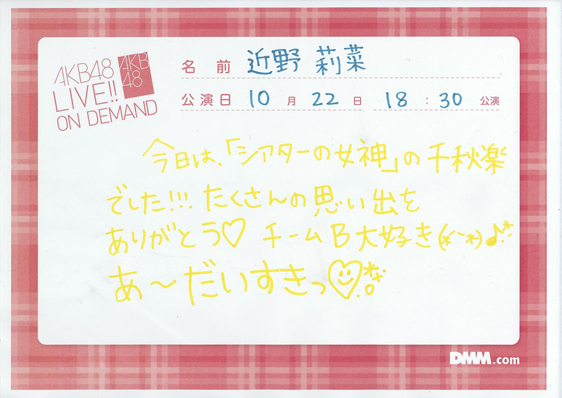 AKB48
LIVE!!
ON DEMAND
AKB
48
名前 近野 莉菜
公演日 10月 22日 18:30 公演
今日は、「シアターの女神」の千秋楽
でした!!! たくさんの思い出を
ありがとう♡ チームB大好き(*´~`*)♪
あ〜だいすきっ♡
DMM.com